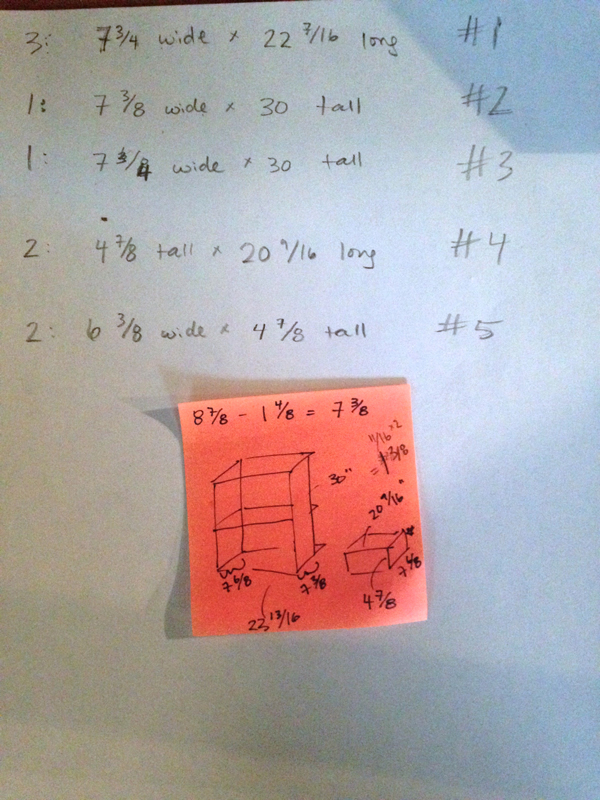 3: 7 3/4 wide × 22 7/16 long #1
1: 7 3/8 wide × 30 tall #2
1: 7 3/4 wide × 30 tall #3
2: 4 7/8 tall × 20 9/16 long #4
2: 6 3/8 wide × 4 7/8 tall #5
8 7/8 - 1 4/8 = 7 3/8
11/16 × 2
= 1 3/8
30"
20 9/16"
7 6/8
7 3/8
7 4/8
4 7/8
22 13/16